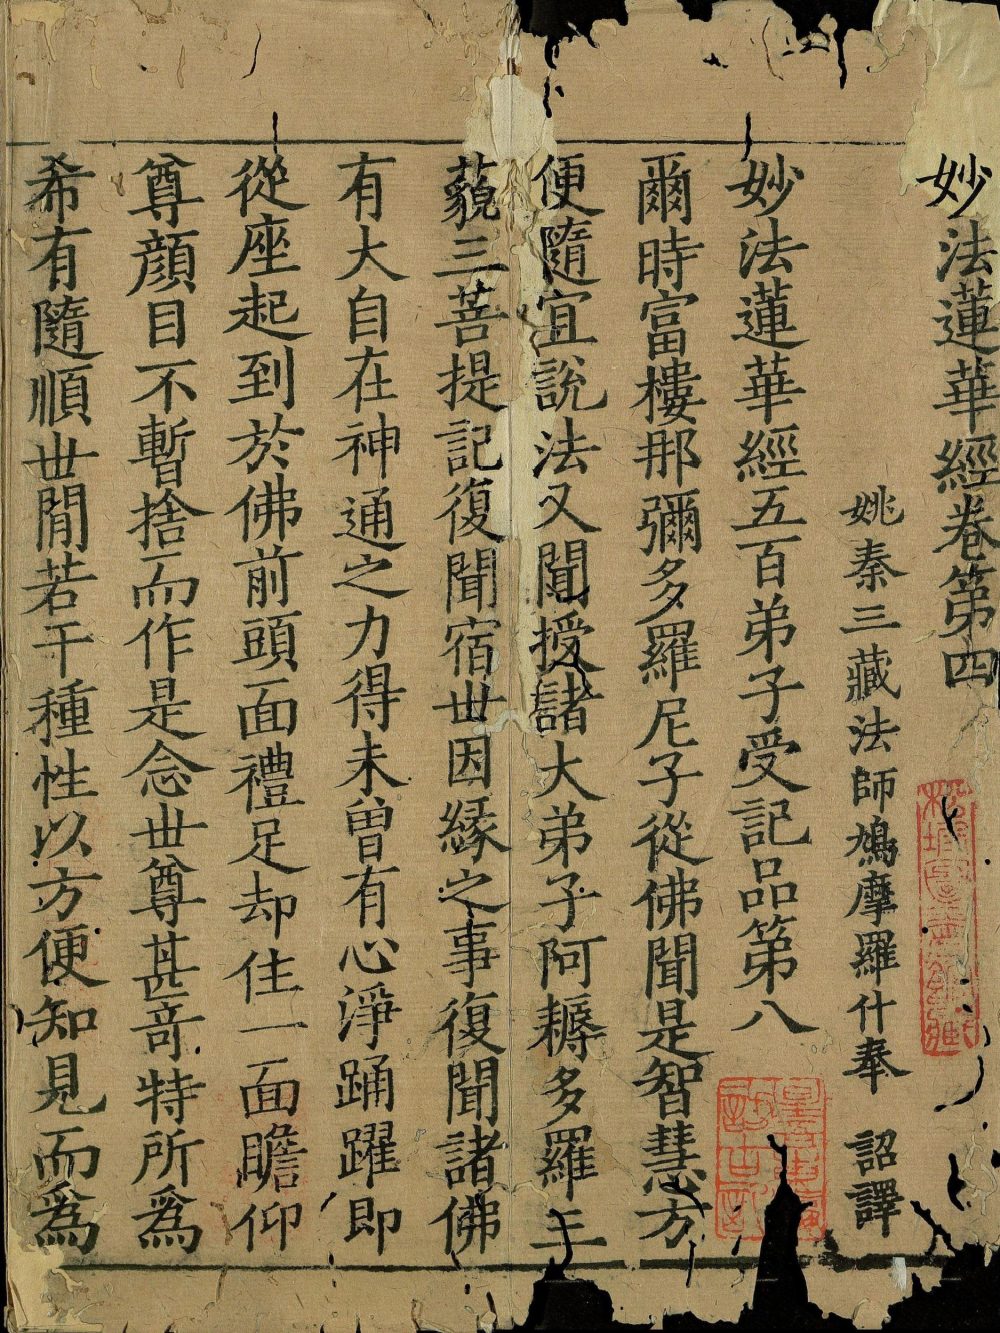 妙法蓮華經卷第四
姚秦三藏法師鳩摩羅什奉 詔譯
妙法蓮華經五百弟子受記品第八
爾時富樓那彌多羅尼子從佛聞是智慧方
便隨宜說法又聞授諸大弟子阿耨多羅三
藐三菩提記復聞宿世因緣之事復聞諸佛
有大自在神通之力得未曾有心淨踊躍即
從座起到於佛前頭面禮足却住一面瞻仰
尊顏目不暫捨而作是念世尊甚奇特所爲
希有隨順世間若干種性以方便知見而爲